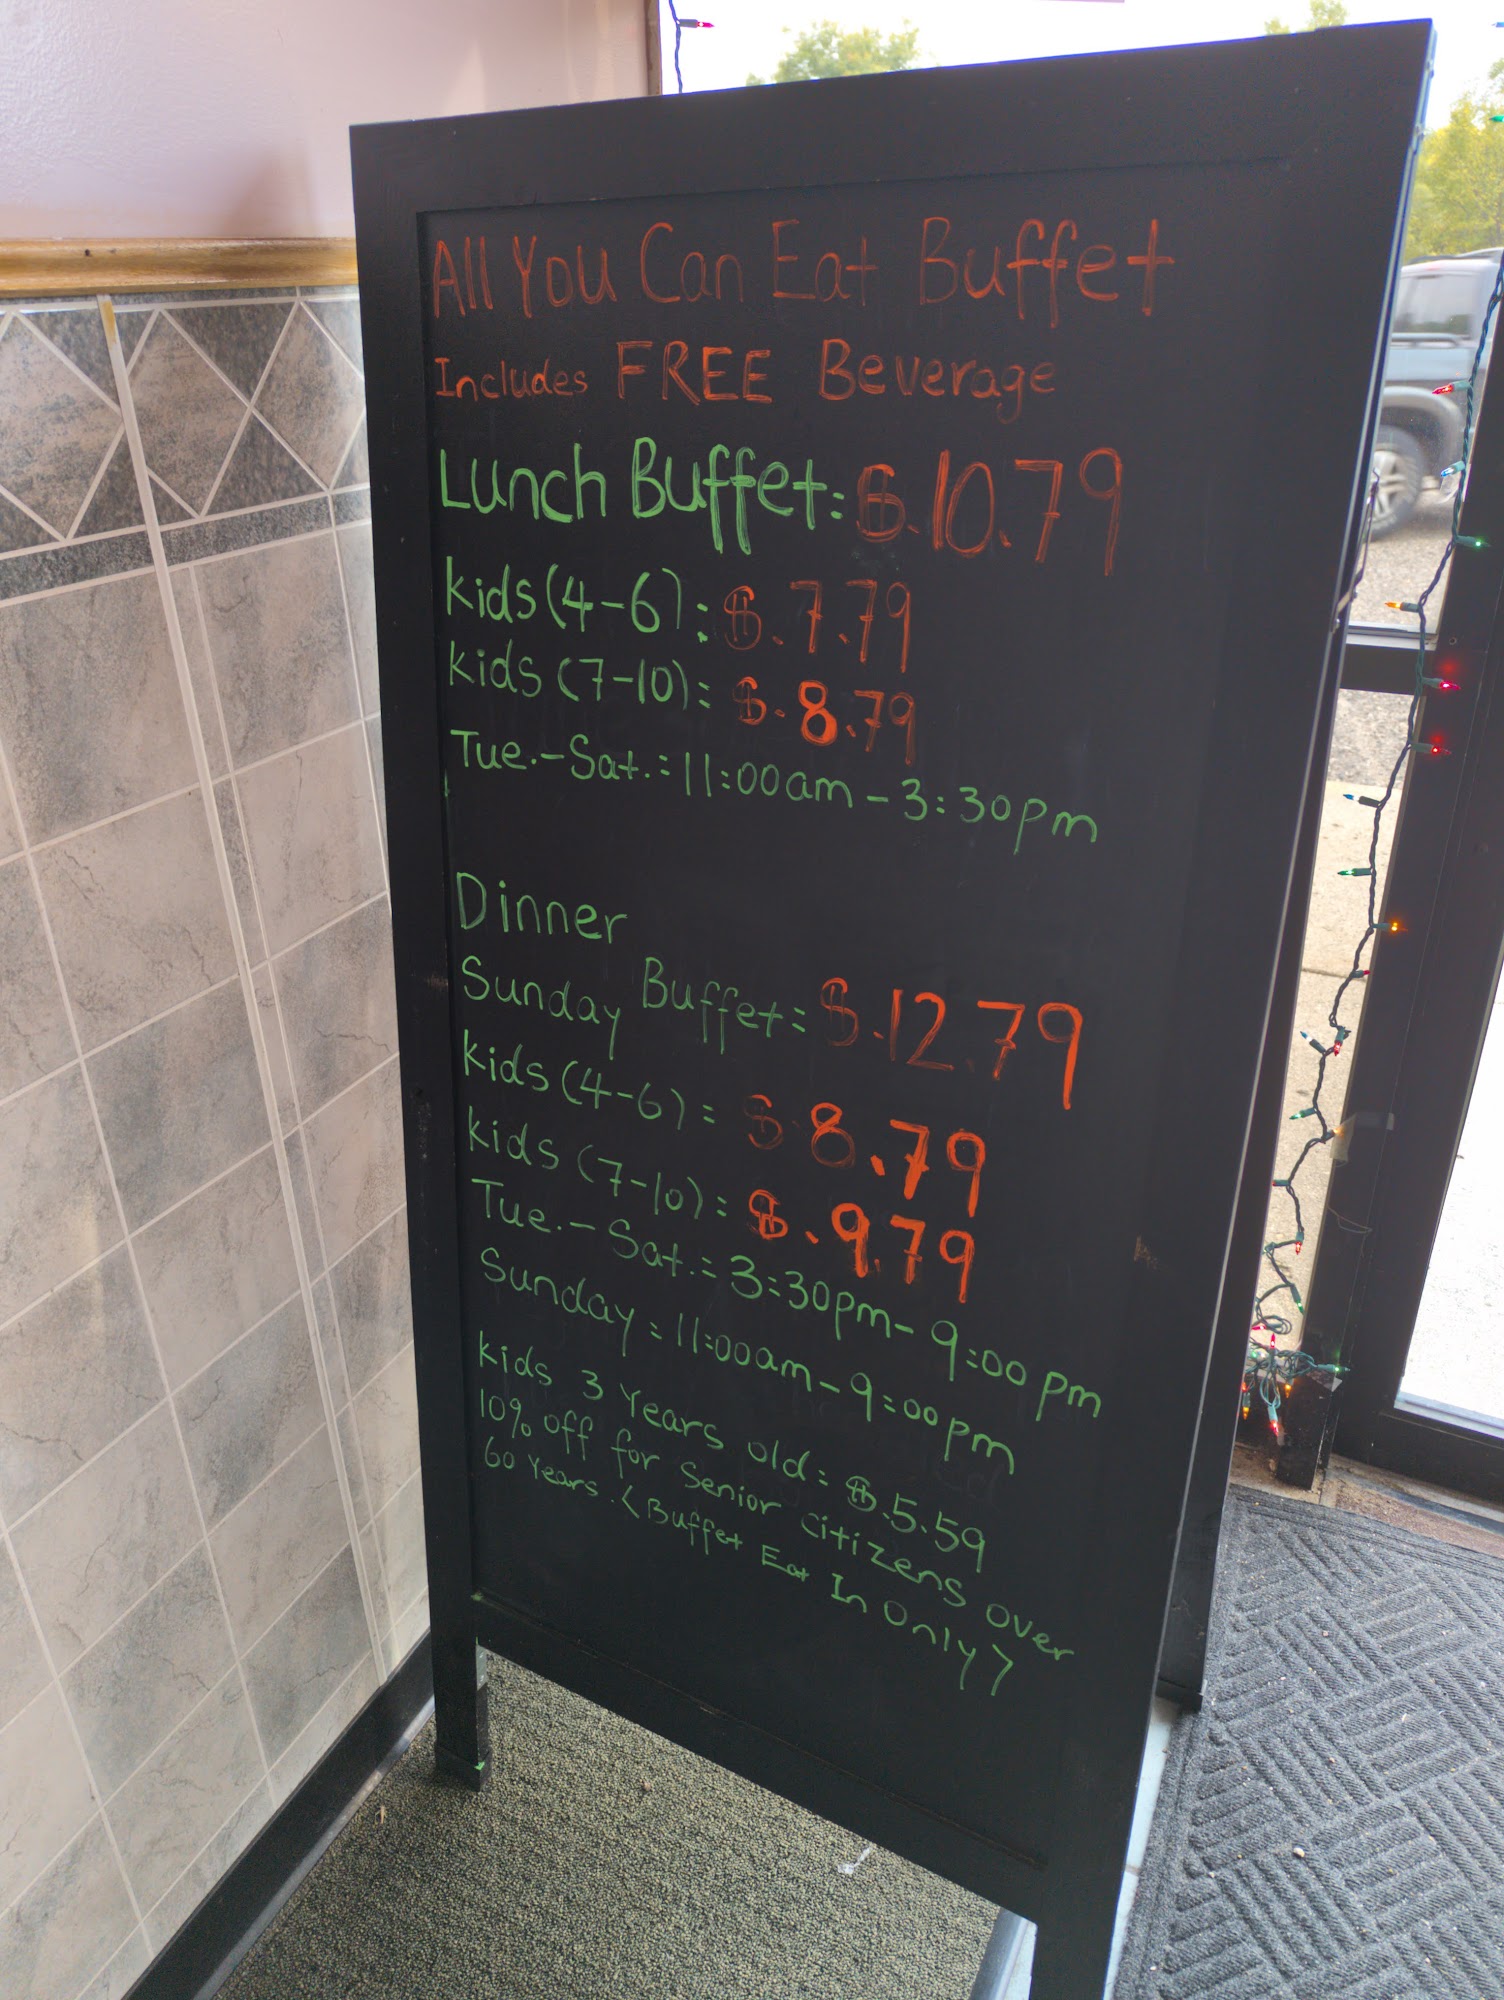 All You Can Eat Buffet
Includes FREE Beverage
Lunch Buffet: $.10.79
kids (4-6): $.7.79
kids (7-10): $.8.79
Tue.-Sat.: 11:00am - 3:30pm
Dinner
Sunday Buffet: $.12.79
kids (4-6): $ 8.79
kids (7-10): $.9.79
Tue.- Sat.: 3:30pm- 9:00 pm
Sunday: 11:00am- 9:00pm
kids 3 Years old: $.5.59
10% off for Senior citizens over
60 Years. <Buffet Eat In Only>